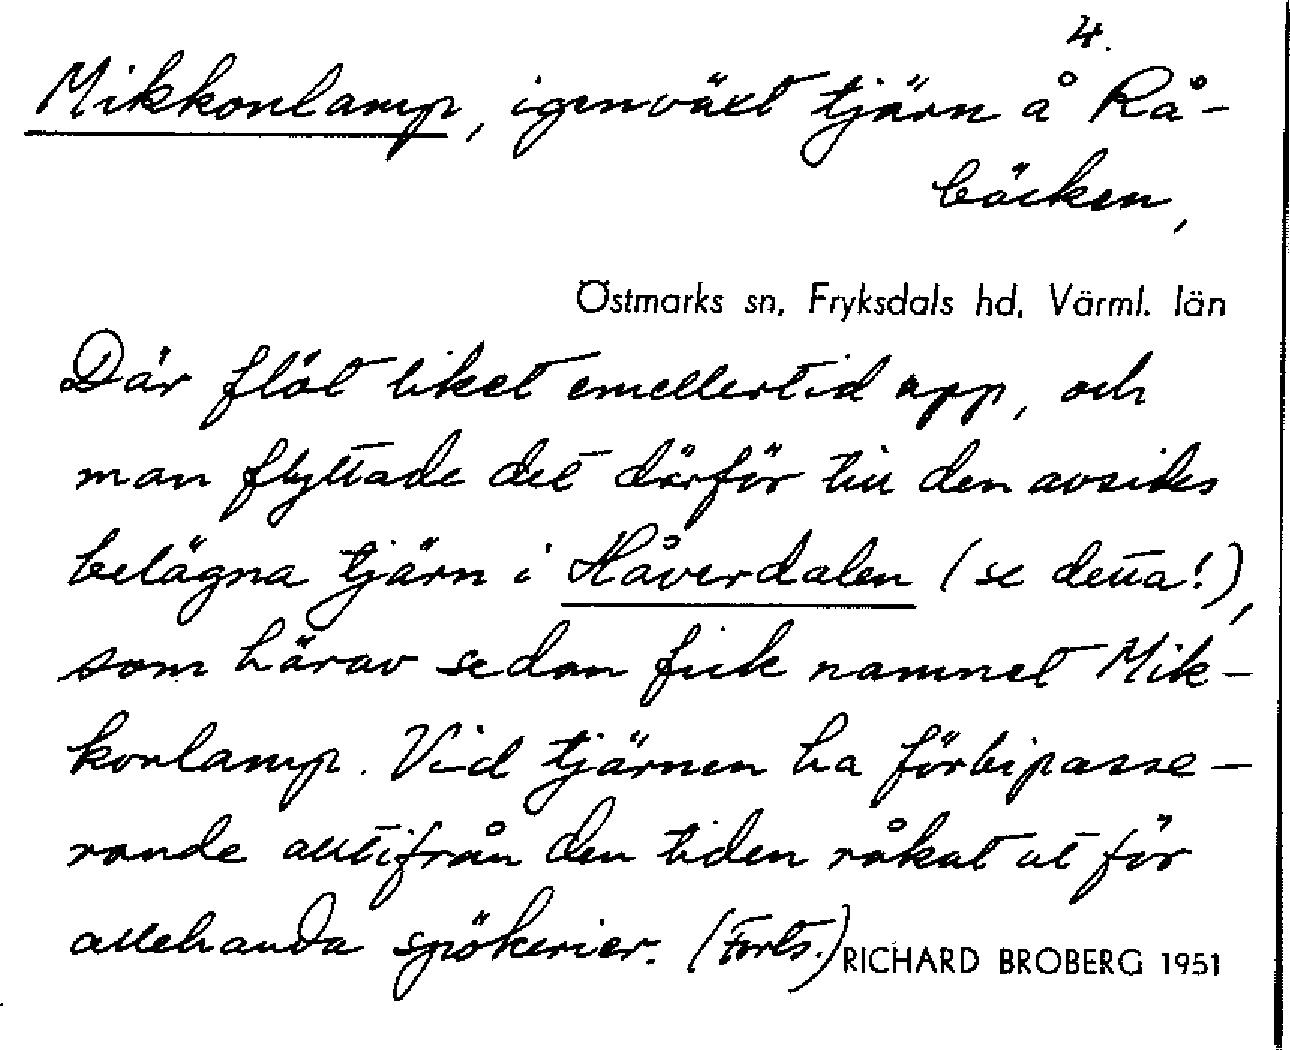 4.
Mikkonlamp, igenväxt tjärn å Rå-
bäcken,
Östmarks sn, Fryksdals hd, Värml. län
Där flöt liket emellertid upp, och
man flyttade det därför till den avsides
belägna tjärn i Håverdalen (se detta!),
som härav sedan fick namnet Mik-
konlamp. Vid tjärnen ha förbipasse-
rande alltifrån den tiden råkat ut för
allehanda spökerier. (Forts.)
RICHARD BROBERG 1951